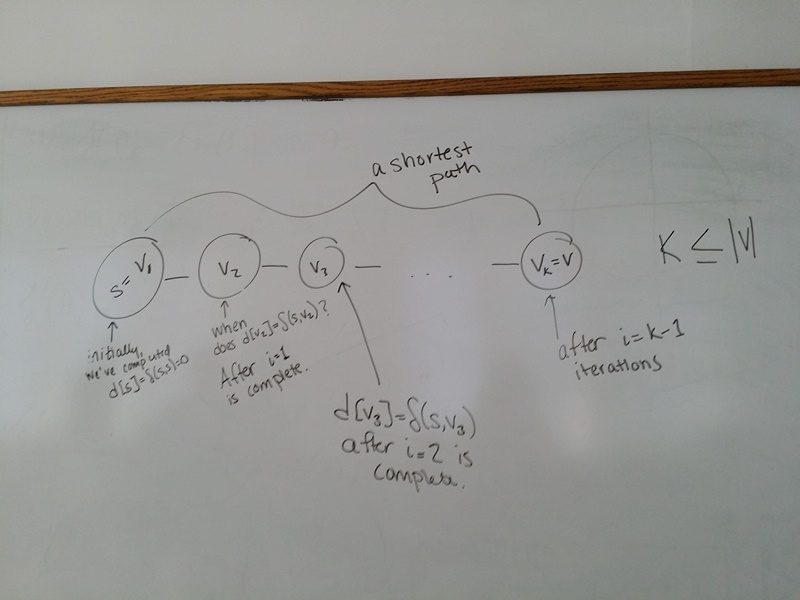 a shortest
path
s = V₁
V₂
V₃
. . .
Vₖ = V
K ≤ |V|
initially,
we've computed
d[s]=δ(s,s)=0
when
does d[v₂]=δ(s,v₂)?
After i=1
is complete.
d[v₃]=δ(s,v₃)
after i=2 is
complete.
after i=k-1
iterations